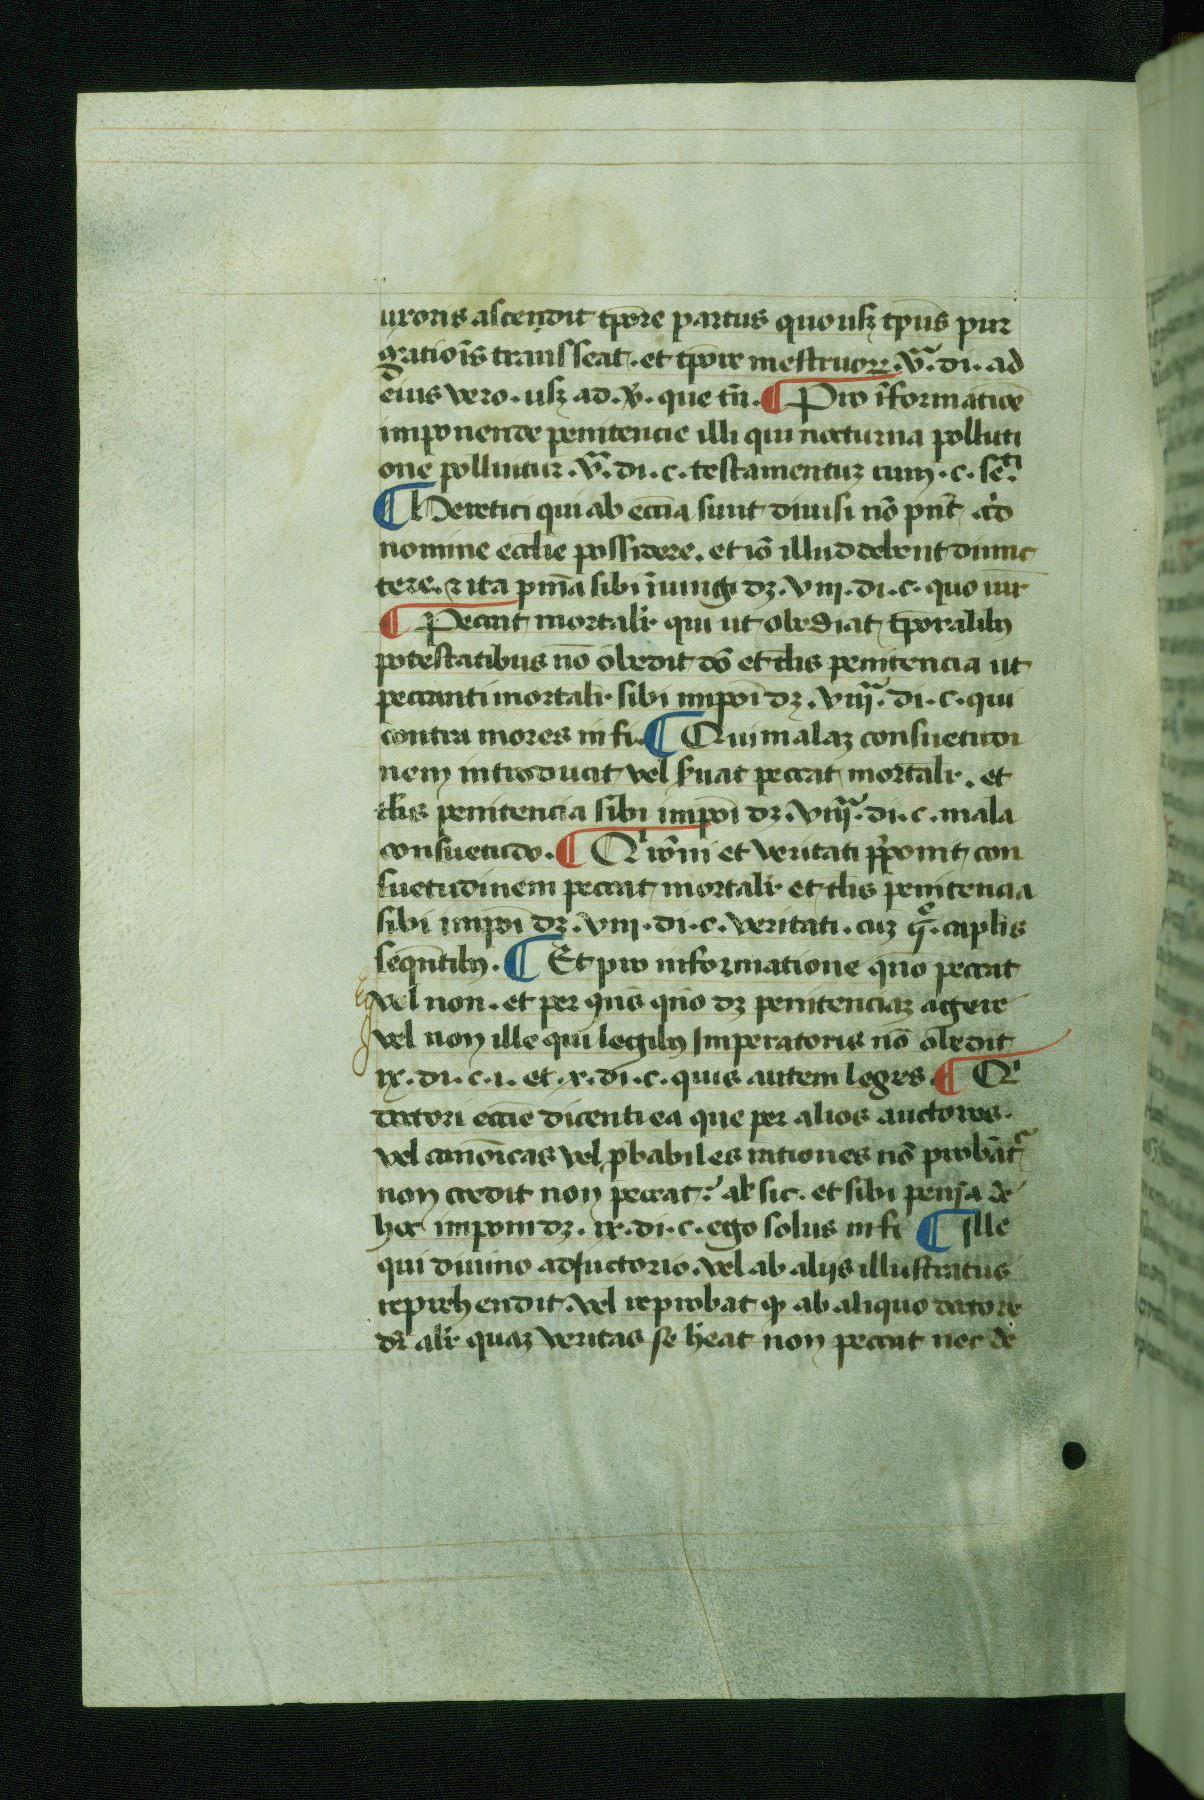 uxoris ascendit tp̄ore partus quousqꝫ tp̄us pur
gr̄atiōis transseat · et tp̄ore mestruorꝝ · v.ᵃ di · ad
eius vero · usqꝫ ad · ꝟ · que tn̄ · ¶ Pro īformatiōe
imponende penitencie illi qui nocturna polluti
one polluitur · vi.ᵃ di · c · testamentuꝫ cum · c · se.ti
¶ Heretici qui ab eccīa sunt diuisi nō pn̄t
nomine ecclie possidere · et iō illud debent dimic
tere · ⁊ ita pnīa sibi īiungi dꝫ · viii · di · c · quo iur
¶ Peccat mortalr̄ qui ut obediat tp̄oralibꝫ
potestatibus nō obedit dō et tlis penitencia ut
peccanti mortalr̄ sibi impōi dꝫ · viii.ᵃ di · c · qui
contra mores in fi · ¶ Qui malaꝫ consuetudi
nem introducit vel s̄uat peccat mortalr̄ · et
tlis penitencia sibi impōi dꝫ · viii.ᵃ di · c · mala
consuetudo · ¶ Qⁱ rōni et veritati p̄ponit con
suetudinem peccat mortalr̄ et tlis penitencia
sibi impōi dꝫ · viii · di · c · veritati · cuꝫ · caplis
seqn̄tibꝫ · ¶ Et pro informatione qn̄o peccat
vel non · et per q̄ns qn̄o dꝫ penitenciaꝫ agere
vel non ille qui legibꝫ Imperatoris nō obedit
ix · di · c · i · et · x · di · c · quis autem leges · ¶ Qⁱ
doctori eccīe dicenti ea que per alios auctores ·
vel canōicas vel p̱babiles rationes nō probāt̄
non credit non peccat : alr̄ sic · et sibi pen̄ia de
hoc imponi dꝫ · ix · di · c · ego solus in fi ¶ Ille
qui diuino adiuctorio · vel ab aliis illustratus
reprehendit · vel reprobat ꝙ ab aliquo doctore
dr̄ alr̄ quaꝫ veritas se h̄eat non peccat nec de